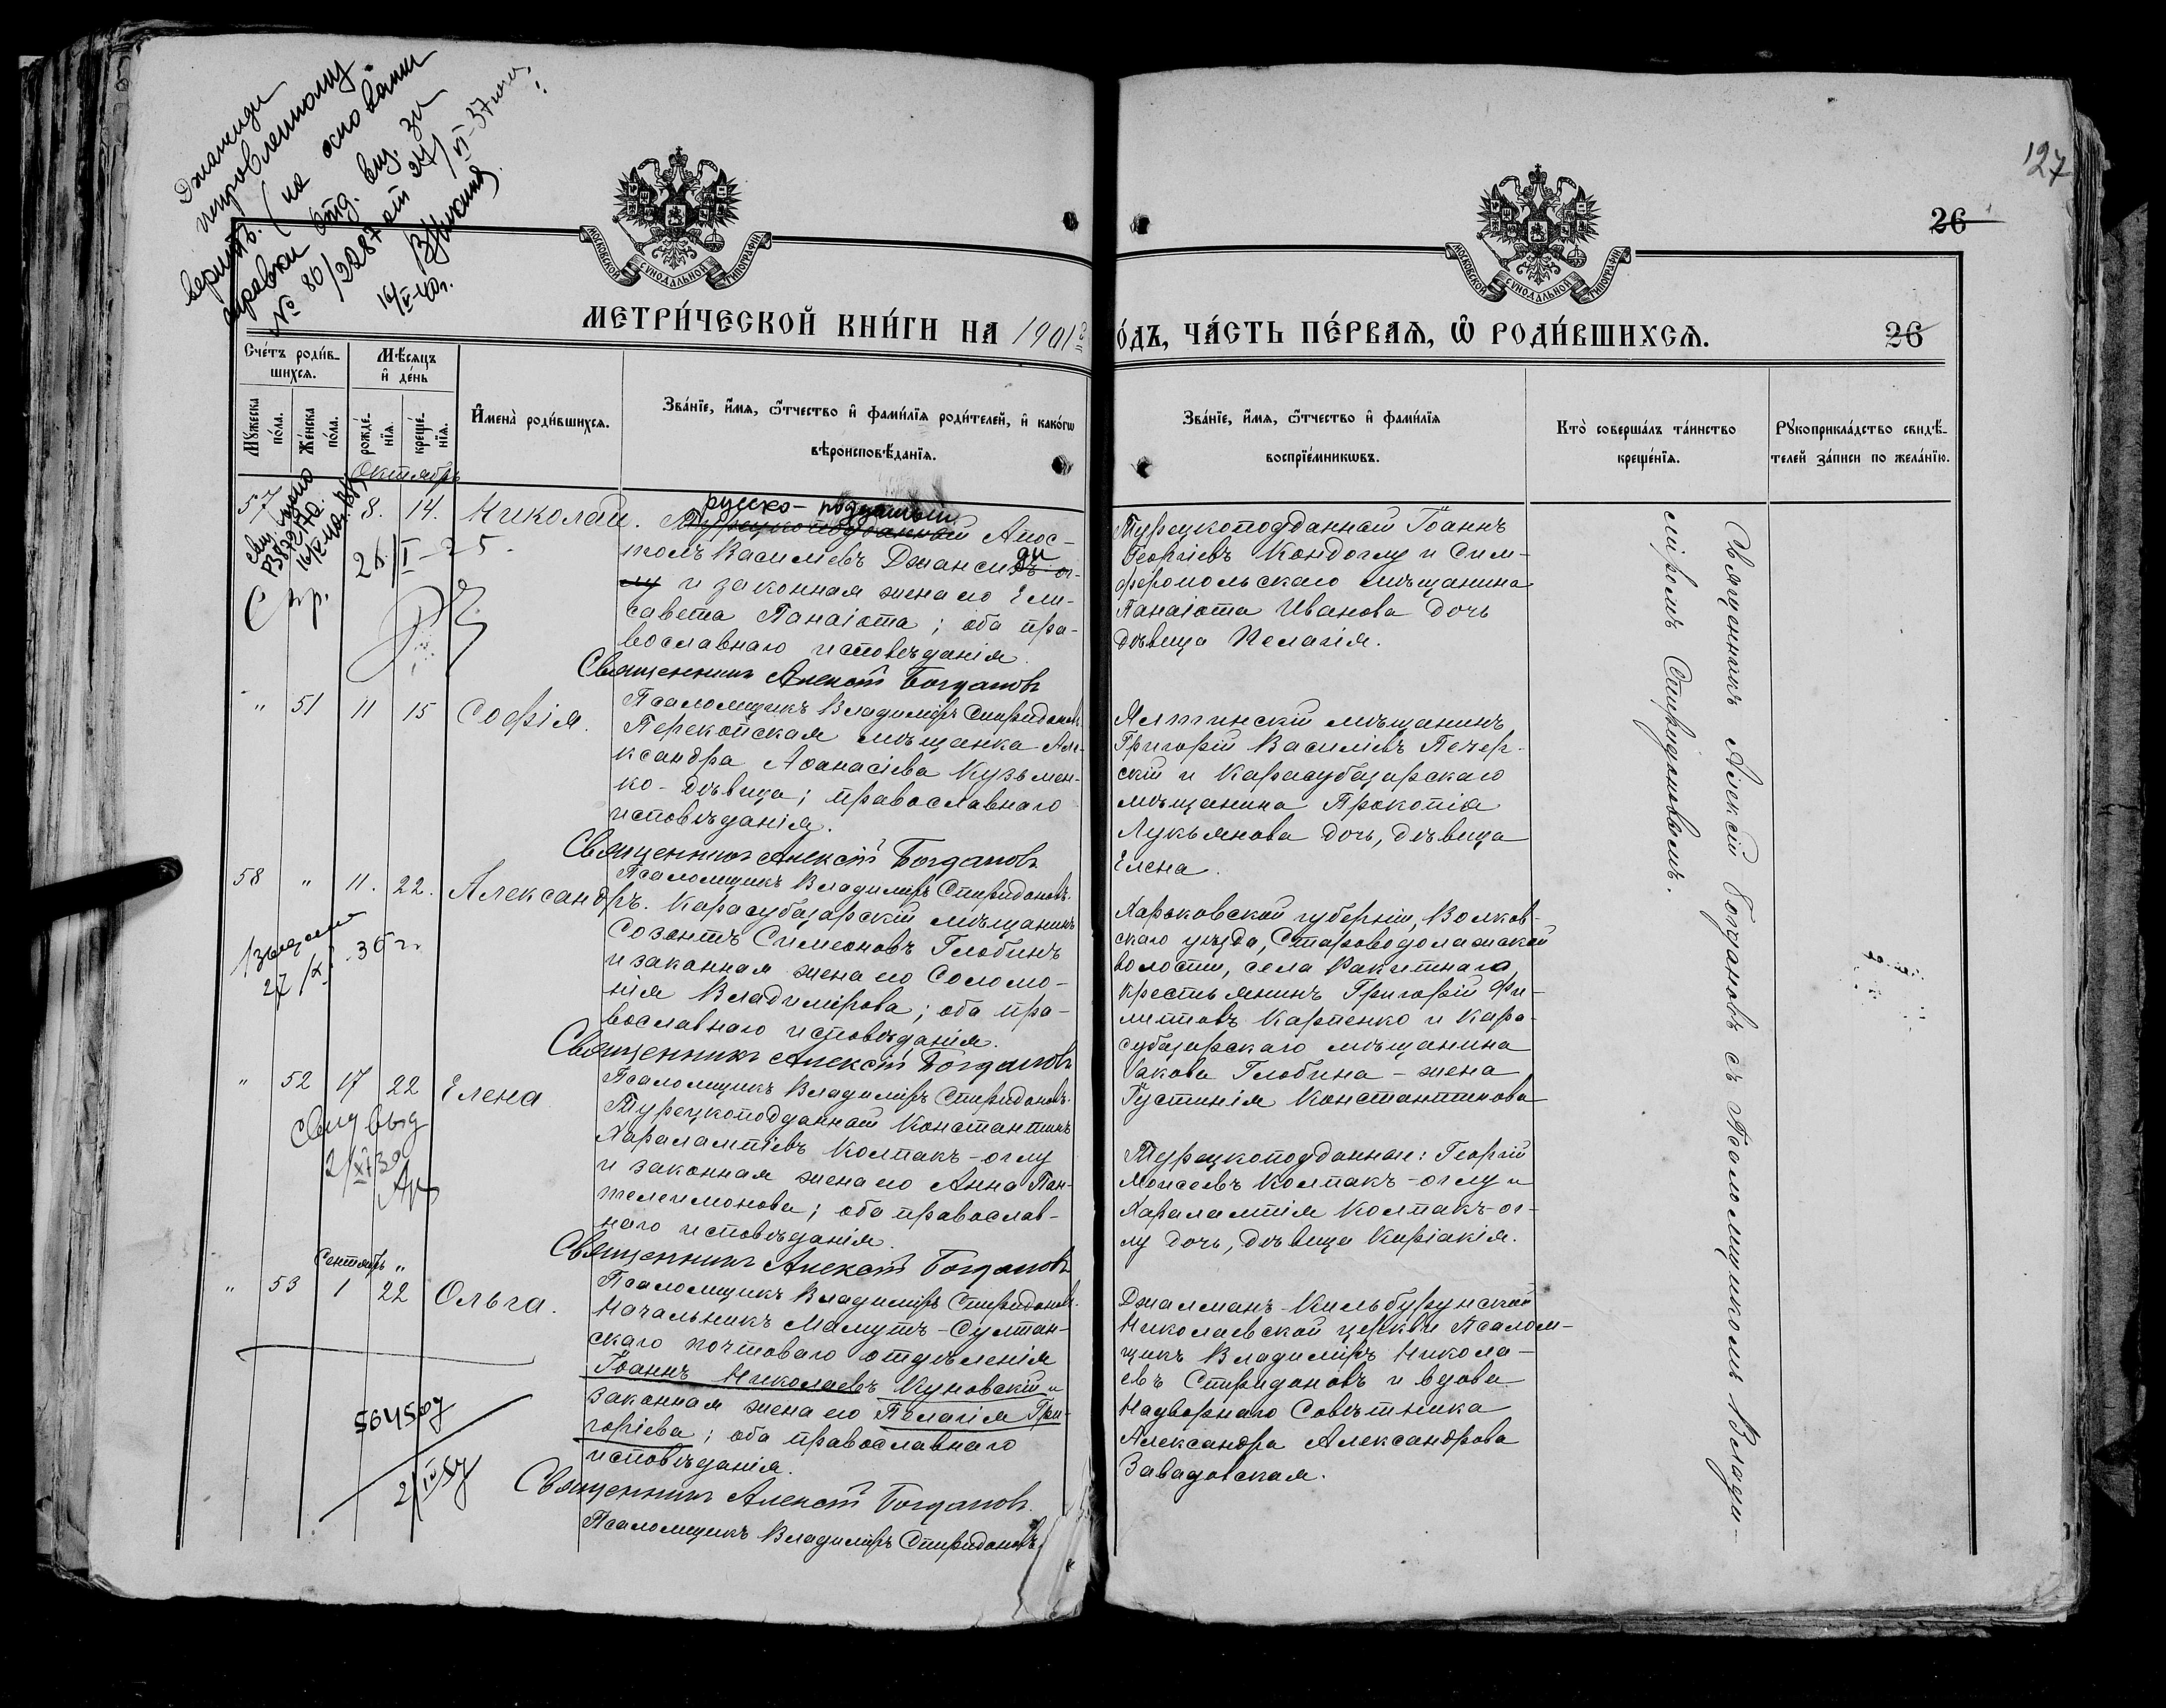 Джансиди
исправленному
верить. (на основании
справки отд. виз. за
№ 80/2287 от 24/VI-37 года
16/V-40г.
127
МОСКОВСКОЙ СУНОДАЛЬНОЙ ТИПОГРАФІИ
МОСКОВСКОЙ СУНОДАЛЬНОЙ ТИПОГРАФІИ
26
МЕТРИ́ЧЕСКОЙ КНИ́ГИ НА 1901 г
О́ДЪ, ЧА́СТЬ ПЕ́РВАЯ, Ѽ РОДИ́ВШИХСЯ.
26
Сче́тъ роди́в-
шихся.
Мѣ́сяцъ
и҆ де́нь
Му́жеска
по́ла.
Же́нска
по́ла.
рожде́-
нїя.
креще́-
нїя.
И҆мена̀ роди́вшихся.
Зва́нїе, и҆́мя, ѻ҆́тчество и҆ фами́лїя роди́телей, и҆ како́гѡ
вѣроисповѣ́данїя.
Зва́нїе, и҆́мя, ѻ҆́тчество и҆ фами́лїя
воспрїе́мникѡвъ.
Кто̀ соверша́лъ та́инство
креще́нїя.
Рꙋкоприкла́дство свидѣ́-
телей за́писи по жела́нїю.
Октябрь
57
8. 14. Николай.
русско-подданый
Турецкоподданный Апос-
толъ Василіевъ Джансизъ-ог-
ди
лу и законная жена его Ели-
савета Панаіота; оба пра-
вославнаго исповѣданія.
Священникъ Алексій Богдановъ
Псаломщикъ Владиміръ Спиридоновъ.
Турецкоподданный Іоаннъ
Георгіевъ Кондоглу и Сим-
феропольскаго мѣщанина
Панаіота Иванова дочь
дѣвица Пелагія.
" 51 11 15 Софія.
Перекопская мѣщанка Але-
ксандра Аѳанасіева Кузьмен-
ко - дѣвица; православнаго
исповѣданія.
Священникъ Алексій Богдановъ
Псаломщикъ Владиміръ Спиридоновъ.
Ялтинскій мѣщанинъ
Григорій Василіевъ Печер-
скій и Карасубазарскаго
мѣщанина Прокопія
Лукьянова дочь, дѣвица
Елена.
58 " 11. 22. Александръ.
Карасубазарскій мѣщанинъ
Созонтъ Симеоновъ Глобинъ
и законная жена его Соломо-
нія Владимірова; оба пра-
вославнаго исповѣданія.
Священникъ Алексій Богдановъ
Псаломщикъ Владиміръ Спиридоновъ.
Харьковской губерніи, Волков-
скаго уѣзда, Староводолажской
волости, села Ракитнаго,
крестьянинъ Григорій Фи-
липповъ Карпенко и Кара-
субазарскаго мѣщанина
Іакова Глобина - жена
Іустинія Константинова
27/IX 36 г.
" 52 17 22 Елена
Турецкоподданный Константинъ
Харалампіевъ Колпакъ-оглу
и законная жена его Анна Пан-
телеимонова; оба православ-
наго исповѣданія.
Священникъ Алексій Богдановъ
Псаломщикъ Владиміръ Спиридоновъ.
Турецкоподданные: Георгій
Моисеевъ Колпакъ-оглу и
Харалампія Колпакъ-ог-
лу дочь, дѣвица Киріакія.
Свид выд
2/XI 39
Сентябрь "
" 53 1 22 Ольга.
Начальникъ Мамутъ-Султан-
скаго почтоваго отдѣленія
Іоаннъ Николаевъ Куновскій и
законная жена его Пелагія Гри-
горіева; оба православнаго
исповѣданія.
Священникъ Алексій Богдановъ.
Псаломщикъ Владиміръ Спиридоновъ.
Джалманъ-Кильбурунской
Николаевской церкви Псалом-
щикъ Владиміръ Никола-
евъ Спиридоновъ и вдова
Надворнаго Совѣтника
Александра Александрова
Завадовская.
Священникъ Алексій Богдановъ съ Псаломщикомъ Влади-
міремъ Спиридоновымъ.